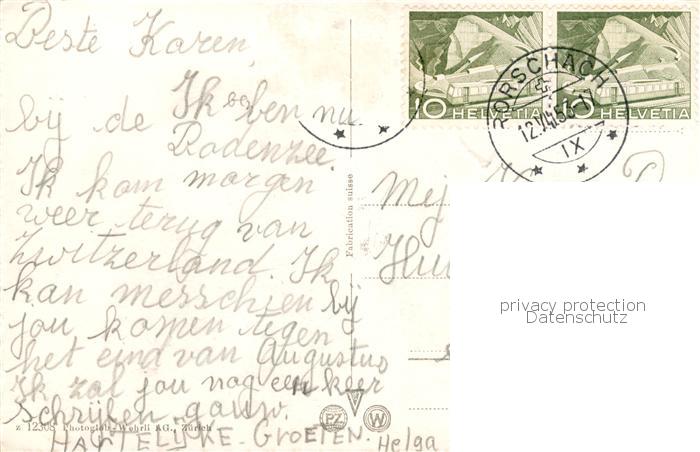 Beste Karen,
Ik ben nu
bij de Bodenzee.
Ik kom morgen
weer terug van
Zwitzerland. Ik
kan messchien bij
jou komen tegen
het eind van Augustus
Ik zal jou nog een keer
schrijven gauw.
HARTELIJKE-GROETEN.
Helga
z 12308 Photoglob-Wehrli AG., Zürich
Fabrication suisse
PZ
W
10 HELVETIA
10 HELVETIA
RORSCHACH
IX
Mej
privacy protection
Datenschutz